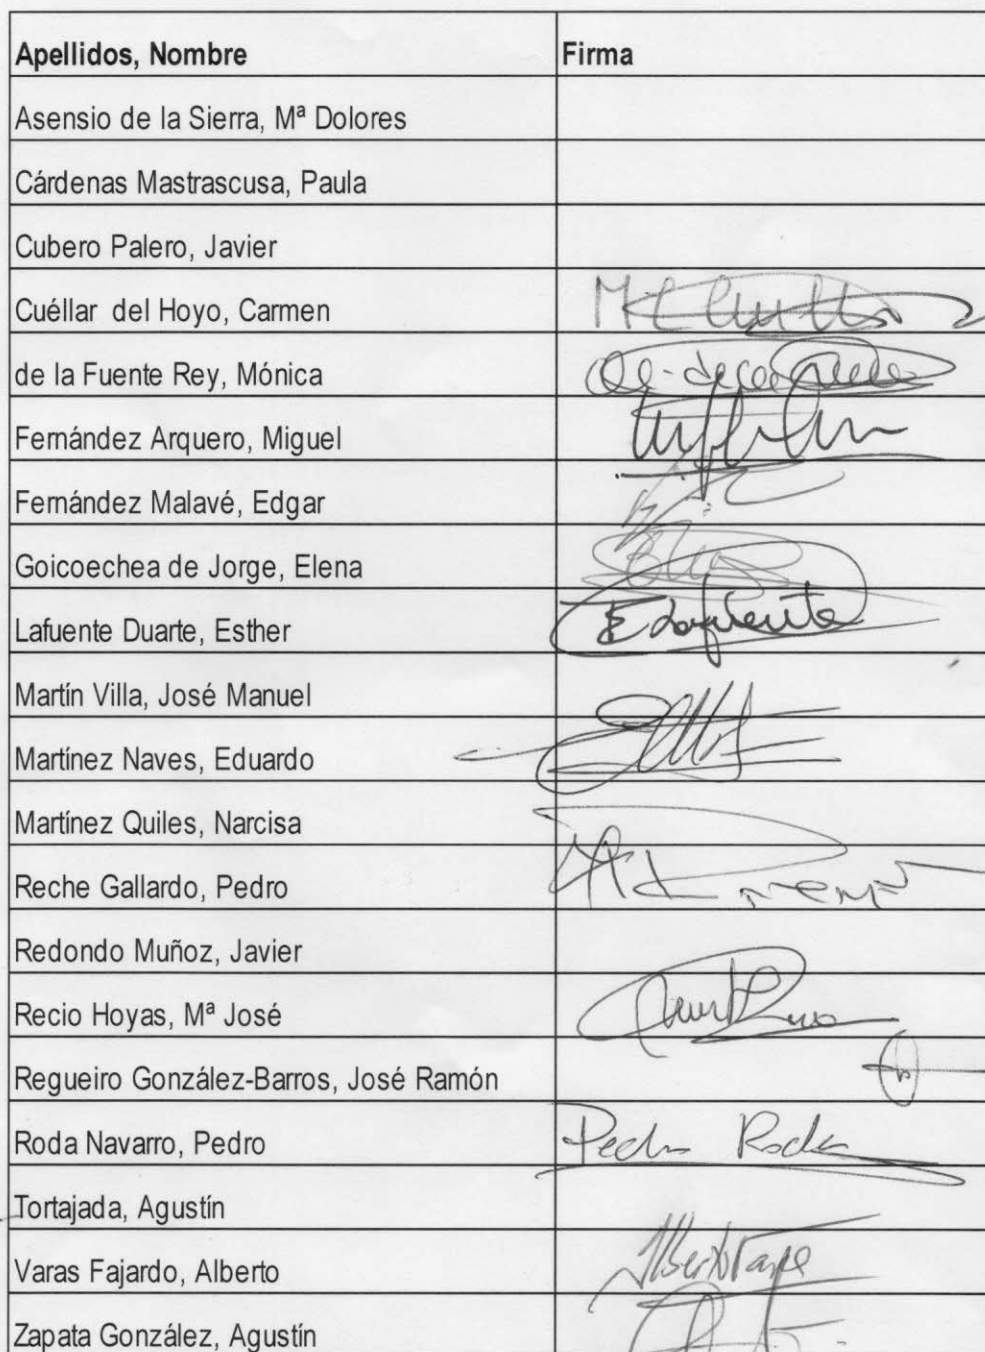 Apellidos, Nombre Firma
Asensio de la Sierra, Mª Dolores
Cárdenas Mastrascusa, Paula
Cubero Palero, Javier
Cuéllar del Hoyo, Carmen
de la Fuente Rey, Mónica
Fernández Arquero, Miguel
Fernández Malavé, Edgar
Goicoechea de Jorge, Elena
Lafuente Duarte, Esther ELafuente
Martín Villa, José Manuel
Martínez Naves, Eduardo
Martínez Quiles, Narcisa
Reche Gallardo, Pedro
Redondo Muñoz, Javier
Recio Hoyas, Mª José
Regueiro González-Barros, José Ramón
Roda Navarro, Pedro Pedro Roda
Tortajada, Agustín
Varas Fajardo, Alberto Alberto
Zapata González, Agustín